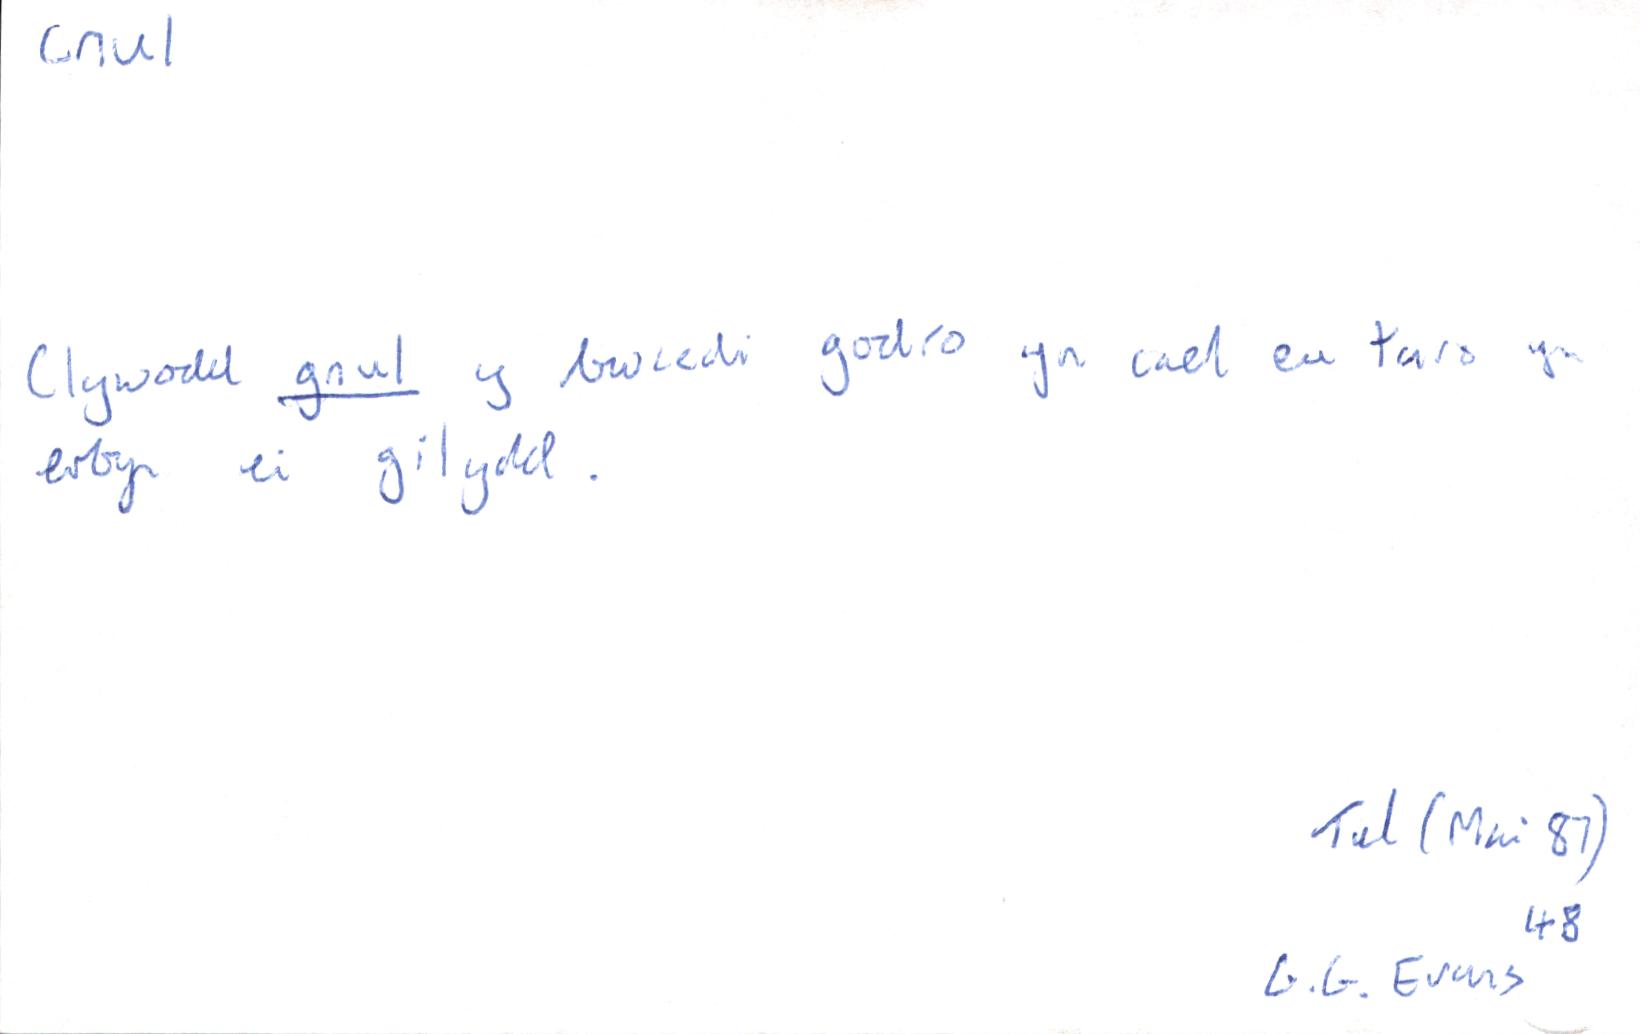 cnul
Clywodd gnul y bwcedi godro yn cael eu taro yn
erbyn ei gilydd.
Tal (Mai 87)
48
G.G. Evans